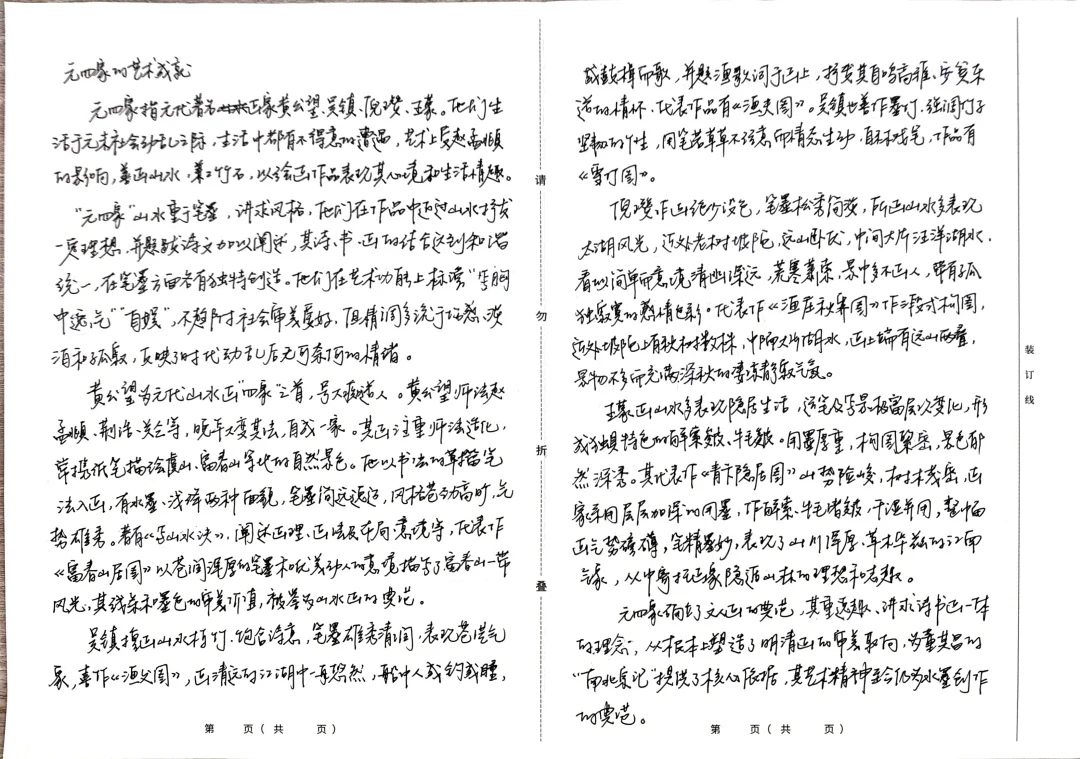 元四家的艺术成就
元四家指元代著名画家黄公望、吴镇、倪瓒、王蒙。他们生
活于元末社会动乱之际，生活中都有不得意的遭遇，艺术上受赵孟頫
的影响，善画山水、兼工竹石，以绘画作品表现其心境和生活情趣。
"元四家"山水重于笔墨，讲求风格，他们在作品中通过山水抒发
理想，并题跋诗文加以阐述，其诗、书、画的结合达到和谐
统一，在笔墨方面各有独特创造。他们在艺术功能上标榜"写胸
中逸气""自娱"，不趋附社会审美爱好，但情调多流于伤感、淡
泊和孤寂，反映了时代动乱后无可奈何的情绪。
黄公望为元代山水画"四家"之首，号大痴道人。黄公望师法赵
孟頫、荆浩、关仝等，晚年又变其法，自成一家。其画注重师法造化，
常携纸笔描绘虞山、富春山等地的自然景色。他以书法的草籀笔
法入画，有水墨、浅绛两种面貌，笔墨简远逸迈，风格苍劲高旷，气
势雄秀。著有《写山水决》，阐述画理、画法及布局、意境等，代表作
《富春山居图》以苍润浑厚的笔墨和优美动人的意境描写了富春山一带
风光，其线条和墨色的审美价值，被誉为山水画的典范。
吴镇擅画山水、梅竹，饱含诗意，笔墨雄秀清润，表现苍茫气
象，喜作《渔父图》，画清远的江湖中一舟悠然，船中人或钓或睡，
或鼓棹而歌，并题渔歌词于画上，抒发其自鸣高雅、安贫乐
道的情怀。代表作品有《渔父图》。吴镇也善作墨竹，强调竹子
坚韧的个性，用笔若草草不经意而情态生动，自和戏笔，作品有
《雪竹图》。
倪瓒作画绝少设色，笔墨松秀简淡，所画山水多表现
太湖风光，近处老树坡陀，远山卧伏，中间大片汪洋湖水，
看似简单而意境清幽深远，荒寒萧索，景中多不画人，带有孤
独寂寞的感情色彩。代表作《渔庄秋霁图》作三段式构图，
近处坡陀上有秋树数株，中隔大片湖水，画上端有远山两叠，
景物不多而充满深秋的萧疏静寂气氛。
王蒙画山水多表现隐居生活，运笔及写景极富层次变化，形
成独具特色的解索皴、牛毛皴。用墨厚重，构图繁密，景色郁
然深秀。其代表作《青卞隐居图》山势险峻，树木茂密，画
家采用层层加深的用墨，作解索、牛毛皴，干湿并用，整幅
画气势磅礴，笔精墨妙，表现了山川浑厚、草木华滋的江南
气象，从中寄托画家隐遁山林的理想和志趣。
元四家确立了文人画的典范，其重逸趣、讲求诗书画一体
的理念，从根本上塑造了明清画的审美取向，为董其昌的
"南北宗论"提供了核心依据，其艺术精神至今仍为水墨创作
的典范。
请
勿
折
叠
装
订
线
第 页(共 页)
第 页(共 页)